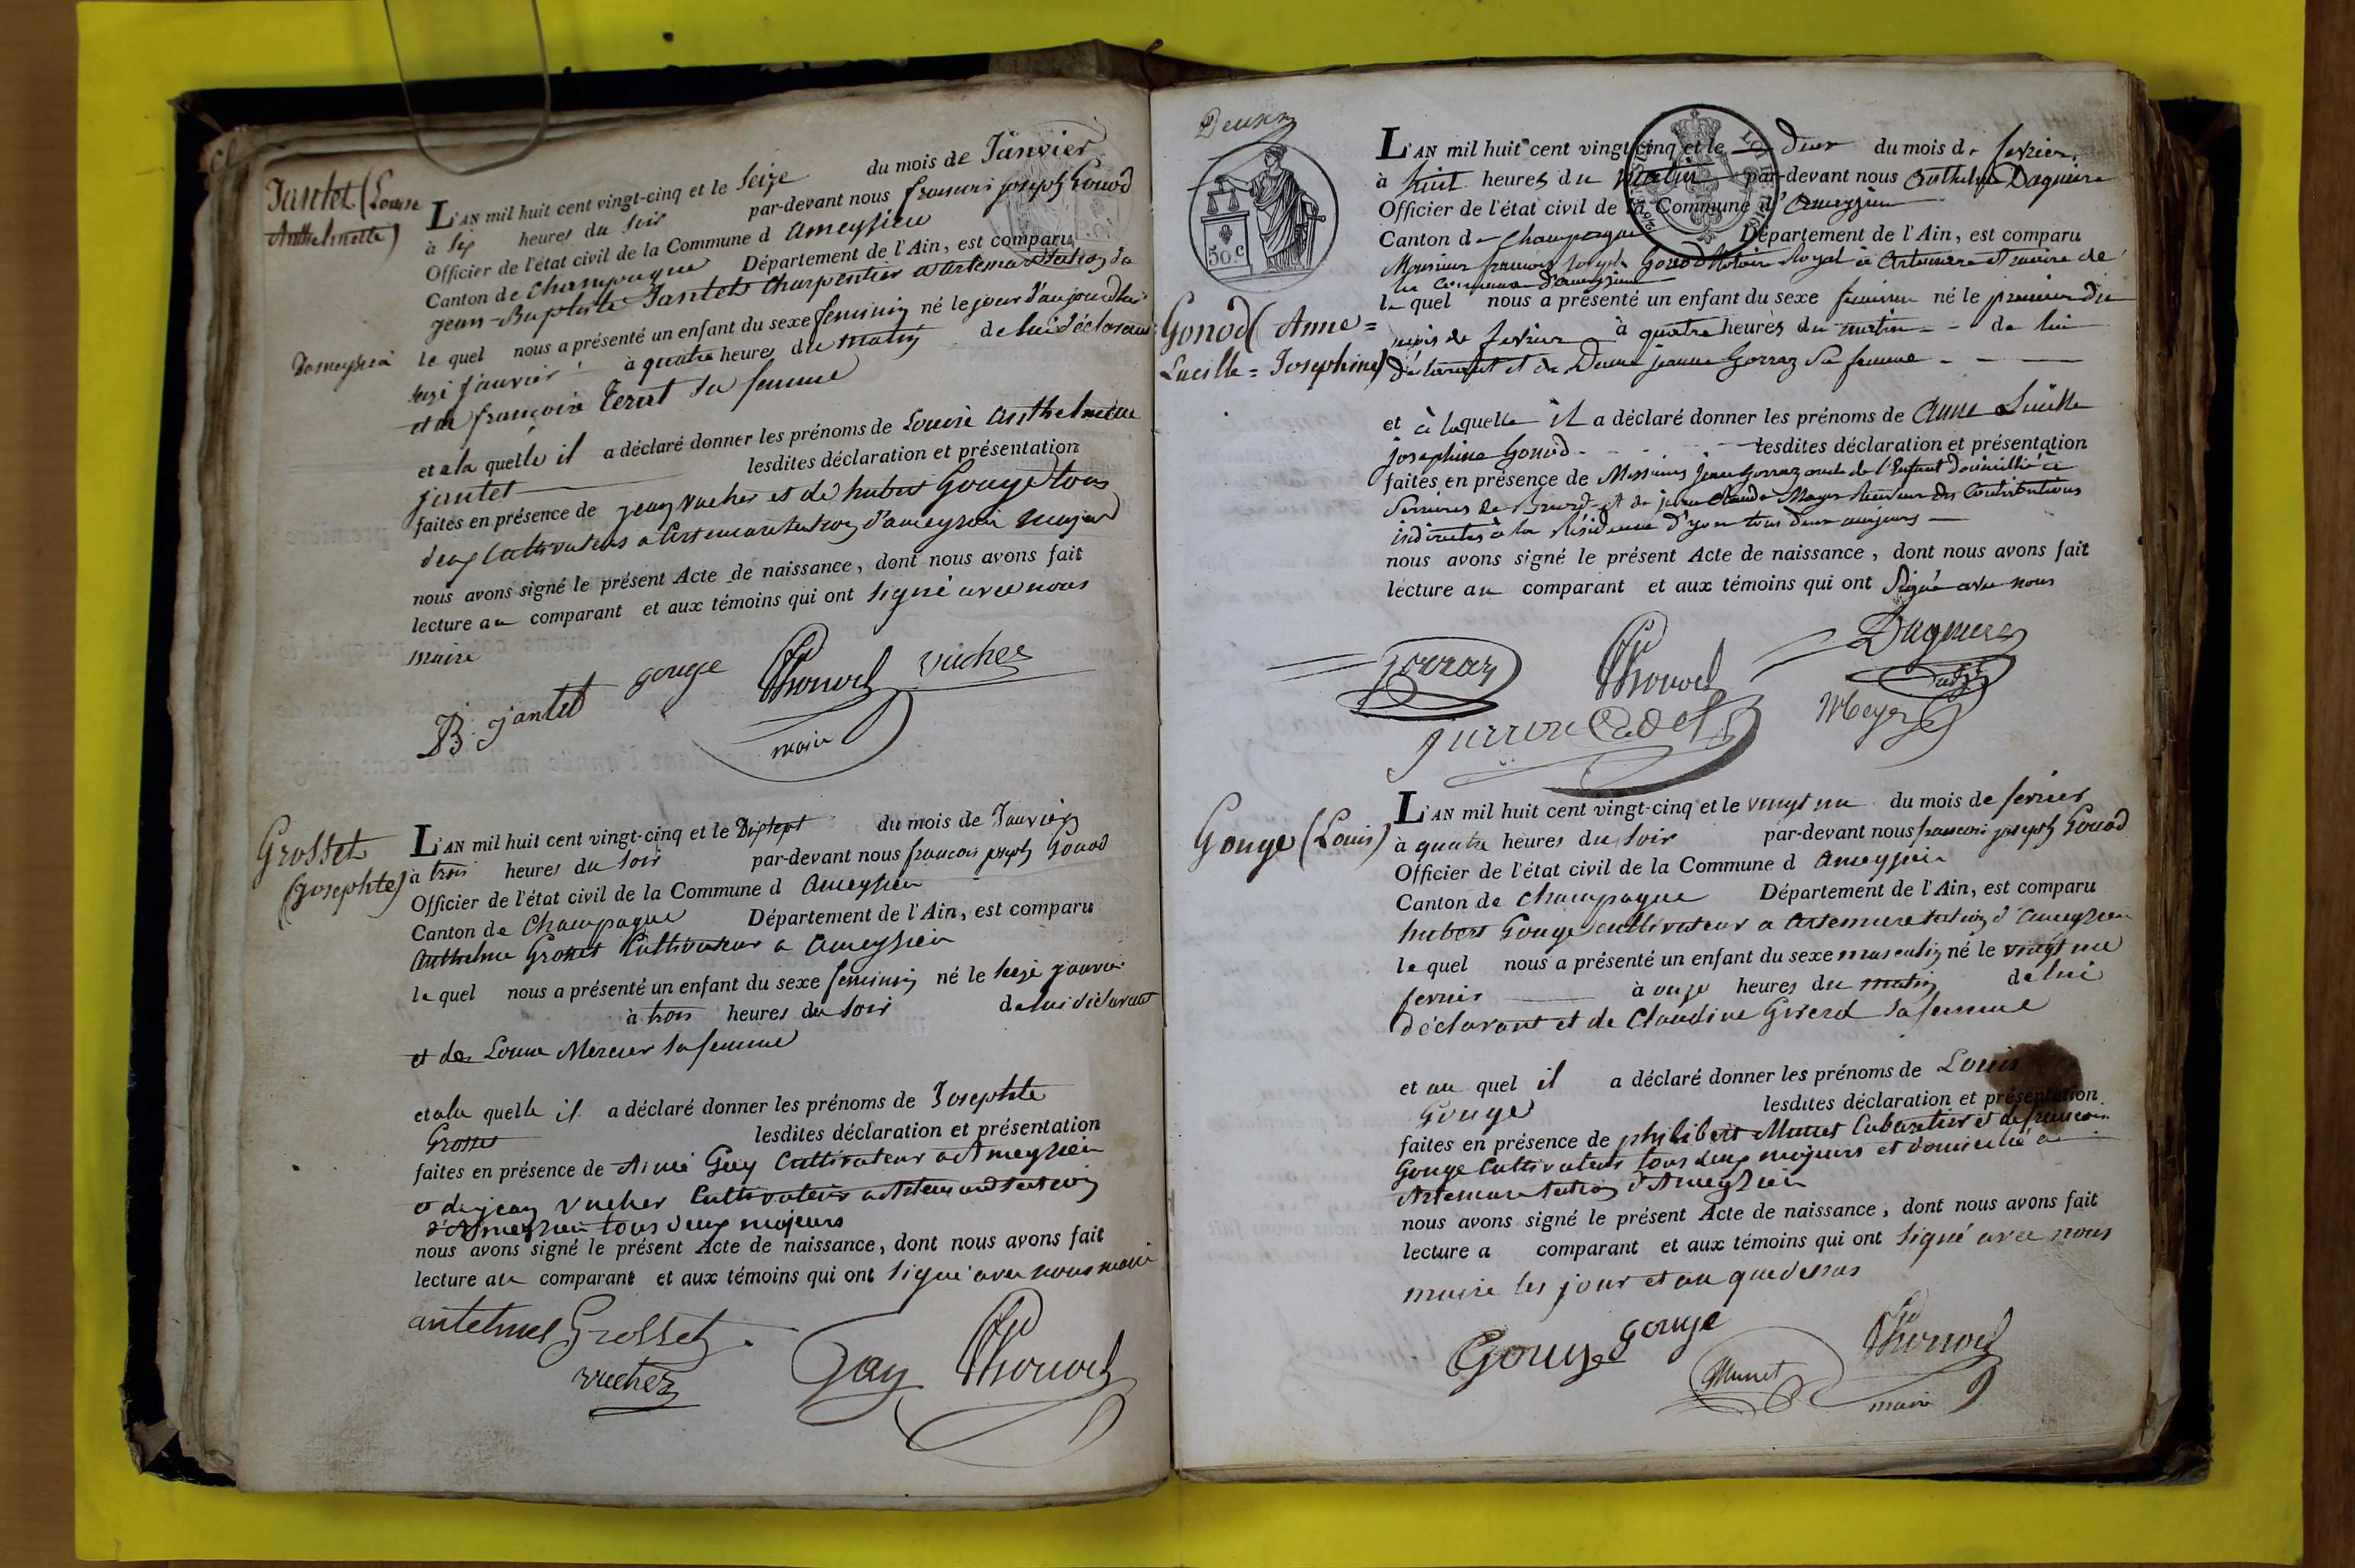 Jantet (Louise
Anthelmette)
d'ameyzieu
L'AN mil huit cent vingt-cinq et le Seize du mois de Janvier
à Six heures du Soir par-devant nous françois joseph Gonod
Officier de l'état civil de la Commune d ameyzieu
Canton de Champagne Département de l'Ain, est comparu
jean-Baptiste Jantet Charpentier a artemare Section d'a
le quel nous a présenté un enfant du sexe feminin né le jour d'aujourdhui
seize janvier à quatre heures du matin de lui déclarant
et de françoise sa femme
et a la quelle il a déclaré donner les prénoms de Louise Anthelmette
jantet lesdites déclaration et présentation
faites en présence de jean vucher et de hubert Gouge tous
deux Cultivateurs a Artemare Section d'ameyzieu majeurs
nous avons signé le présent Acte de naissance, dont nous avons fait
lecture au comparant et aux témoins qui ont Signé avec nous
maire
JB. jantet gouge fJ Gonod vucher
maire
Grosset
(josephte)
L'AN mil huit cent vingt-cinq et le Dixsept du mois de Janvier
à trois heures du Soir par-devant nous francois joseph Gonod
Officier de l'état civil de la Commune d Ameyzieu
Canton de Champagne Département de l'Ain, est comparu
Anthelme Grosset Cultivateur a Ameyzieu
le quel nous a présenté un enfant du sexe feminin né le Seize janvier
à trois heures du Soir de lui déclarant
et de Louise Mercier sa femme
et a la quelle il a déclaré donner les prénoms de Josephte
Grosset lesdites déclaration et présentation
faites en présence de Aimé Guy Cultivateur a Ameyzieu
et de jean vucher Cultivateur a Artemare Section
d'Ameyzieu tous deux majeurs
nous avons signé le présent Acte de naissance, dont nous avons fait
lecture au comparant et aux témoins qui ont Signé avec nous maire
antelme Grosset
vucher Gay fJ Gonod
Deux
50 C
Gonod (Anne=
Lucille=Josephine)
L'AN mil huit cent vingt-cinq et le deux du mois de fevrier
à huit heures du matin par-devant nous Anthelme Daguere
Officier de l'état civil de la Commune d'Ameyzieu
Canton de Champagne Département de l'Ain, est comparu
Monsieur francois Joseph Gonod Notaire Royal à Artemare et maire de
la Commune d'Ameyzieu
le quel nous a présenté un enfant du sexe feminin né le premier du
mois de fevrier à quatre heures du matin de lui
déclarant et de Dame jeanne Gorraz sa femme
et à laquelle il a déclaré donner les prénoms de Anne Lucille
josephine Gonod lesdites déclaration et présentation
faites en présence de Messieurs Jean Gorraz oncle de l'Enfant domicilié à
Serrieres de Briord et de jean Claude Meyer Receveur des Contributions
indirectes à la Résidence d'yon tous deux majeurs
nous avons signé le présent Acte de naissance, dont nous avons fait
lecture au comparant et aux témoins qui ont Signé avec nous
gorraz fJ Gonod Daguere
Meyer
Gouge (Louis)
L'AN mil huit cent vingt-cinq et le vingt un du mois de fevrier
à quatre heures du Soir par-devant nous francois joseph Gonod
Officier de l'état civil de la Commune d Ameyzieu
Canton de Champagne Département de l'Ain, est comparu
hubert Gouge cultivateur a Artemare Section d'Ameyzieu
le quel nous a présenté un enfant du sexe masculin né le vingt un
fevrier à onze heures du matin de lui
déclarant et de Claudine Girerd sa femme
et au quel il a déclaré donner les prénoms de Louis
Gouge lesdites déclaration et présentation
faites en présence de philibert Munet Cabaretier et de francois
Gouge Cultivateur tous deux majeurs et domicilié a
Artemare Section d'Ameyzieu
nous avons signé le présent Acte de naissance, dont nous avons fait
lecture a comparant et aux témoins qui ont Signé avec nous
maire les jour et an que dessus
Gouge gouge Munet fJ Gonod
maire